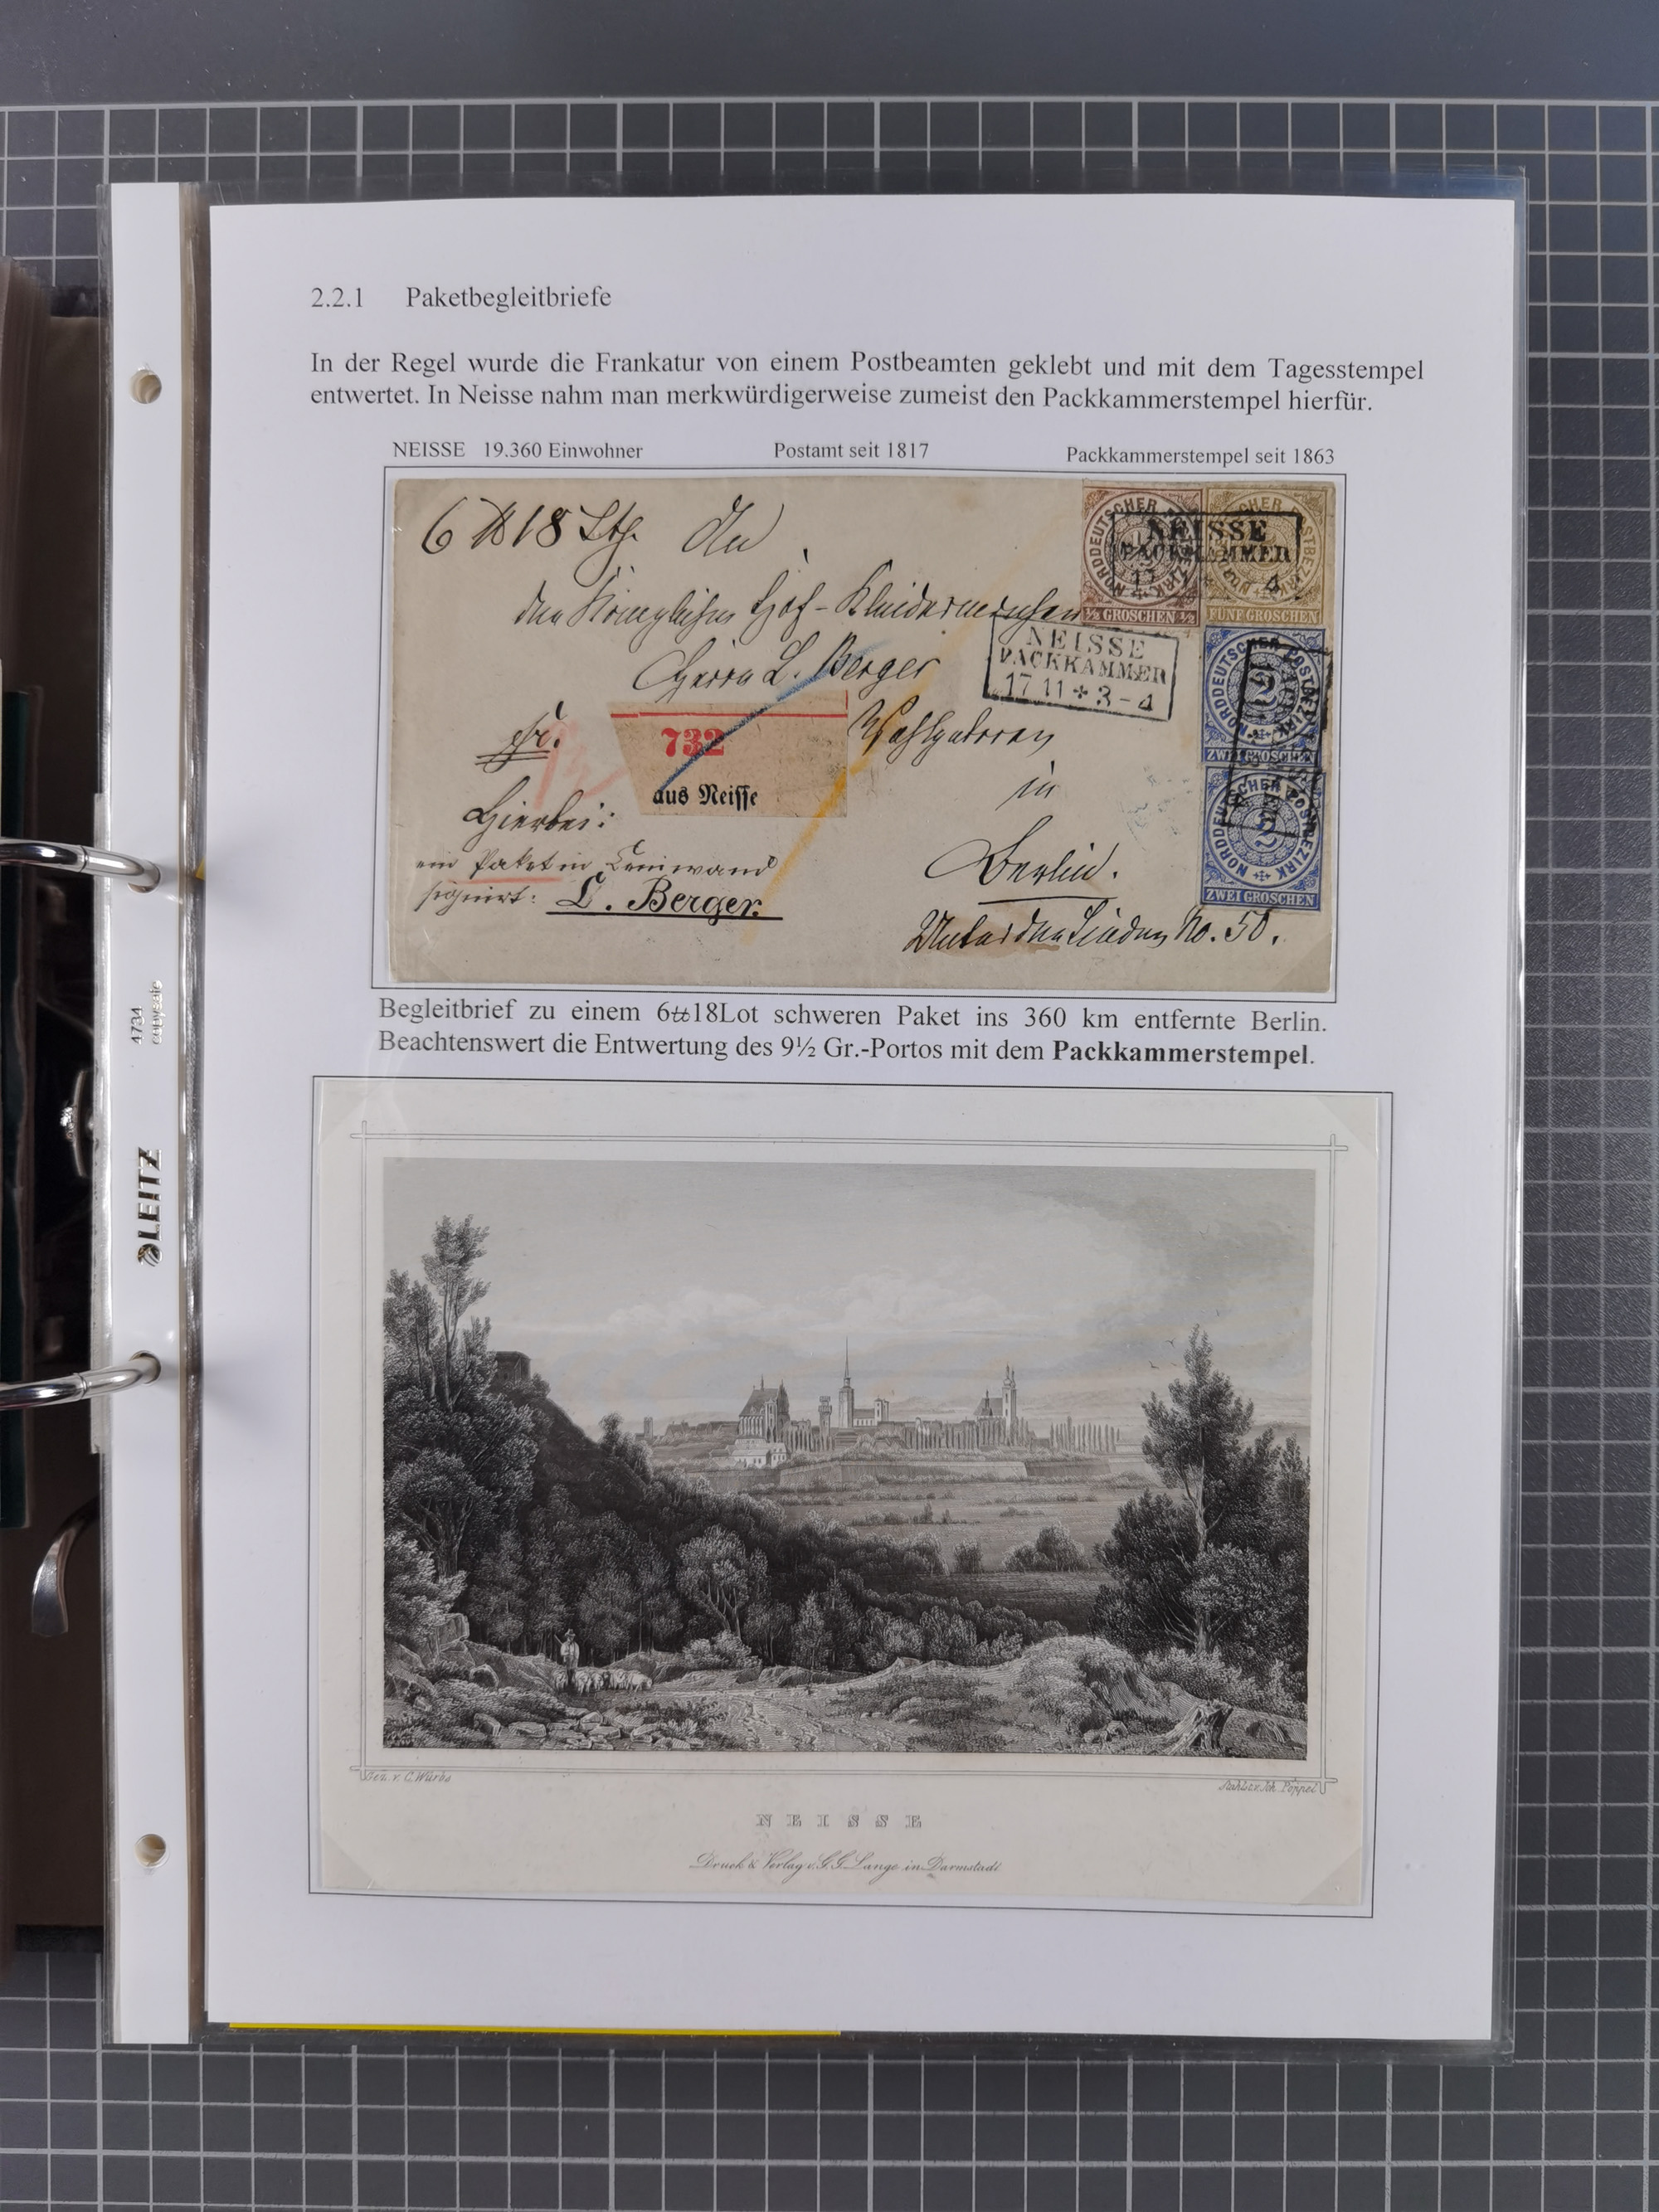 2.2.1 Paketbegleitbriefe
In der Regel wurde die Frankatur von einem Postbeamten geklebt und mit dem Tagesstempel
entwertet. In Neisse nahm man merkwürdigerweise zumeist den Packkammerstempel hierfür.
NEISSE 19.360 Einwohner Postamt seit 1817 Packkammerstempel seit 1863
6 ℔ 18 Lth. An
den Königlichen Hof-Kleidermacher
Herrn L. Berger
fr. Wohlgeboren
732
aus Neisse
in
Hierbei:
ein Paket in Leinwand
signirt: L. Berger.
Berlin.
Unter den Linden No. 50.
NORDDEUTSCHER POSTBEZIRK
½ GROSCHEN ½
NORDDEUTSCHER POSTBEZIRK
FÜNF GROSCHEN
NEISSE
PACKKAMMER
17 4
NEISSE
PACKKAMMER
17 11 + 3-4
NORDDEUTSCHER POSTBEZIRK
2
ZWEI GROSCHEN
NORDDEUTSCHER POSTBEZIRK
2
ZWEI GROSCHEN
Begleitbrief zu einem 6℔18Lot schweren Paket ins 360 km entfernte Berlin.
Beachtenswert die Entwertung des 9½ Gr.-Portos mit dem Packkammerstempel.
Gez. v. C. Würbs
Stahlst. v. Joh. Poppel
NEISSE
Druck & Verlag v. G. G. Lange in Darmstadt
LEITZ
4734
copysafe